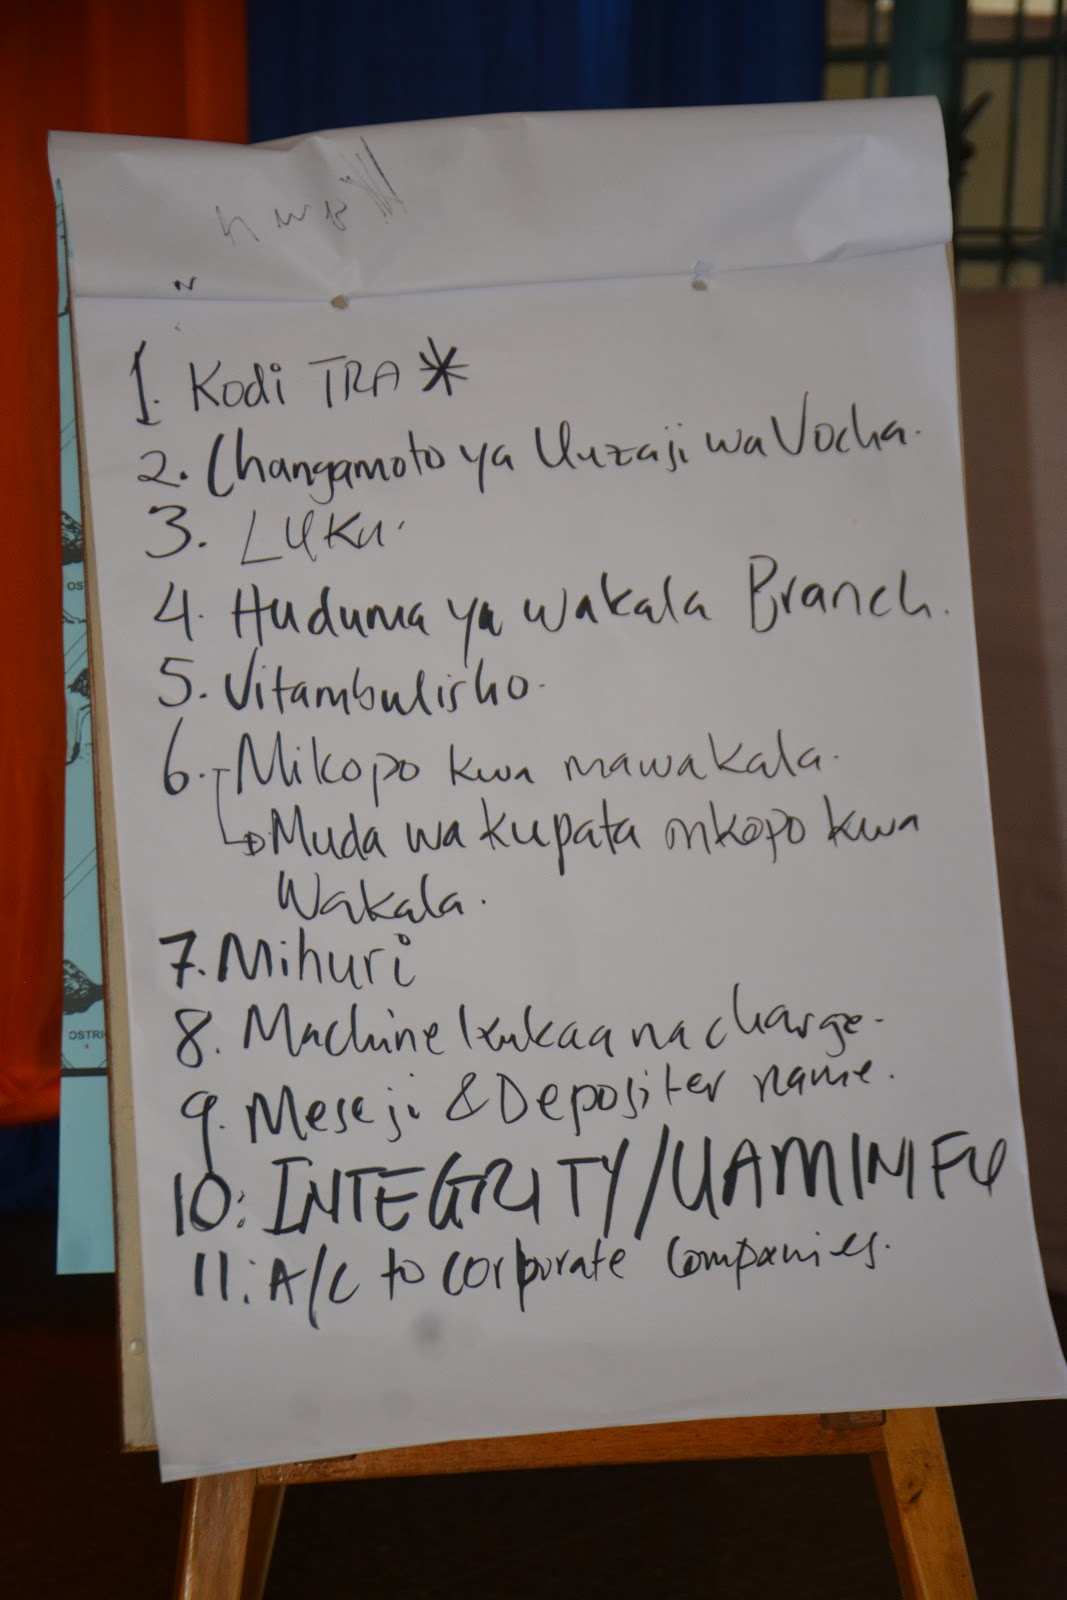 1. Kodi TRA *
2. Changamoto ya Uuzaji wa Vocha.
3. LUKU.
4. Huduma ya wakala Branch.
5. Vitambulisho.
6. Mikopo kwa mawakala.
Muda wa kupata mkopo kwa
Wakala.
7. Mihuri
8. Machine kukaa na charge.
9. Meseji & Depositer name.
10: INTEGRITY/UAMINIFU
11: A/C to corporate companies.